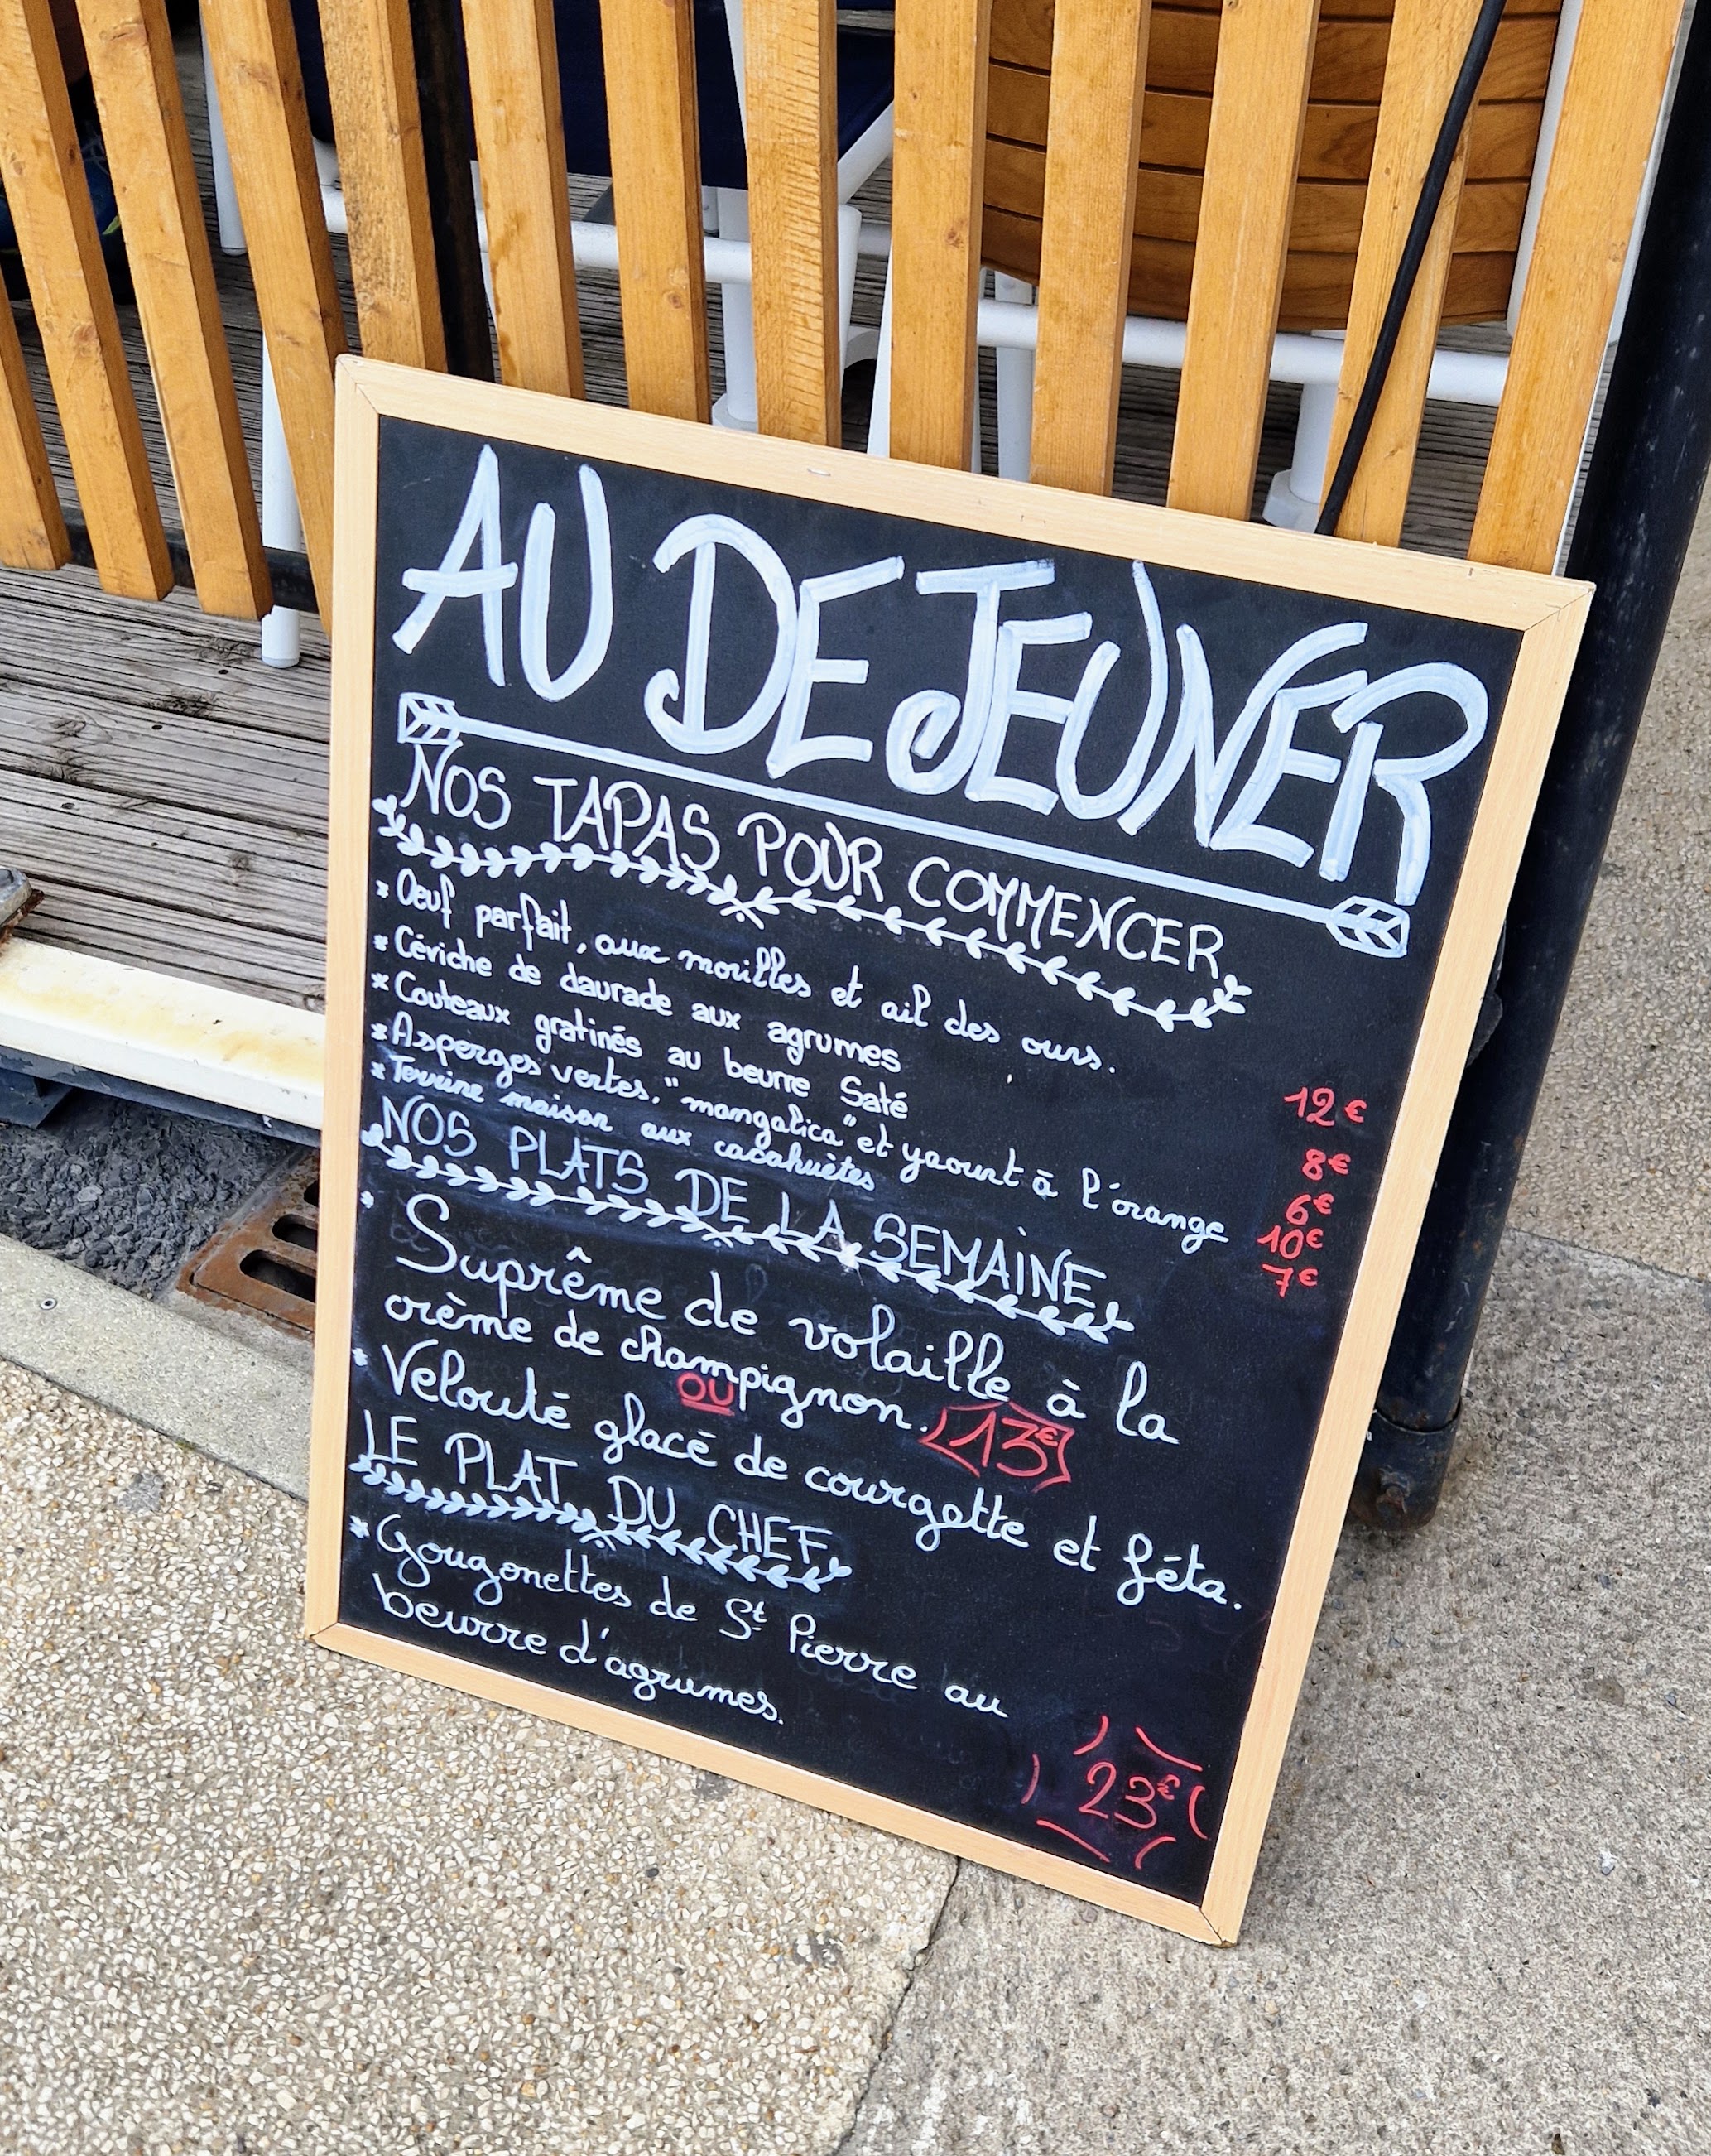 AU DEJEUNER
NOS TAPAS POUR COMMENCER
* Oeuf parfait, aux morilles et ail des ours. 12€
* Céviche de daurade aux agrumes 8€
* Couteaux gratinés au beurre Saté 6€
* Asperges vertes, "mangalica" et yaourt à l'orange 10€
* Terrine maison aux cacahuètes 7€
NOS PLATS DE LA SEMAINE
* Suprême de volaille à la
crème de champignon. 13€
OU
* Velouté glacé de courgette et féta.
LE PLAT DU CHEF
* Gougonettes de St Pierre au
beurre d'agrumes.
23€